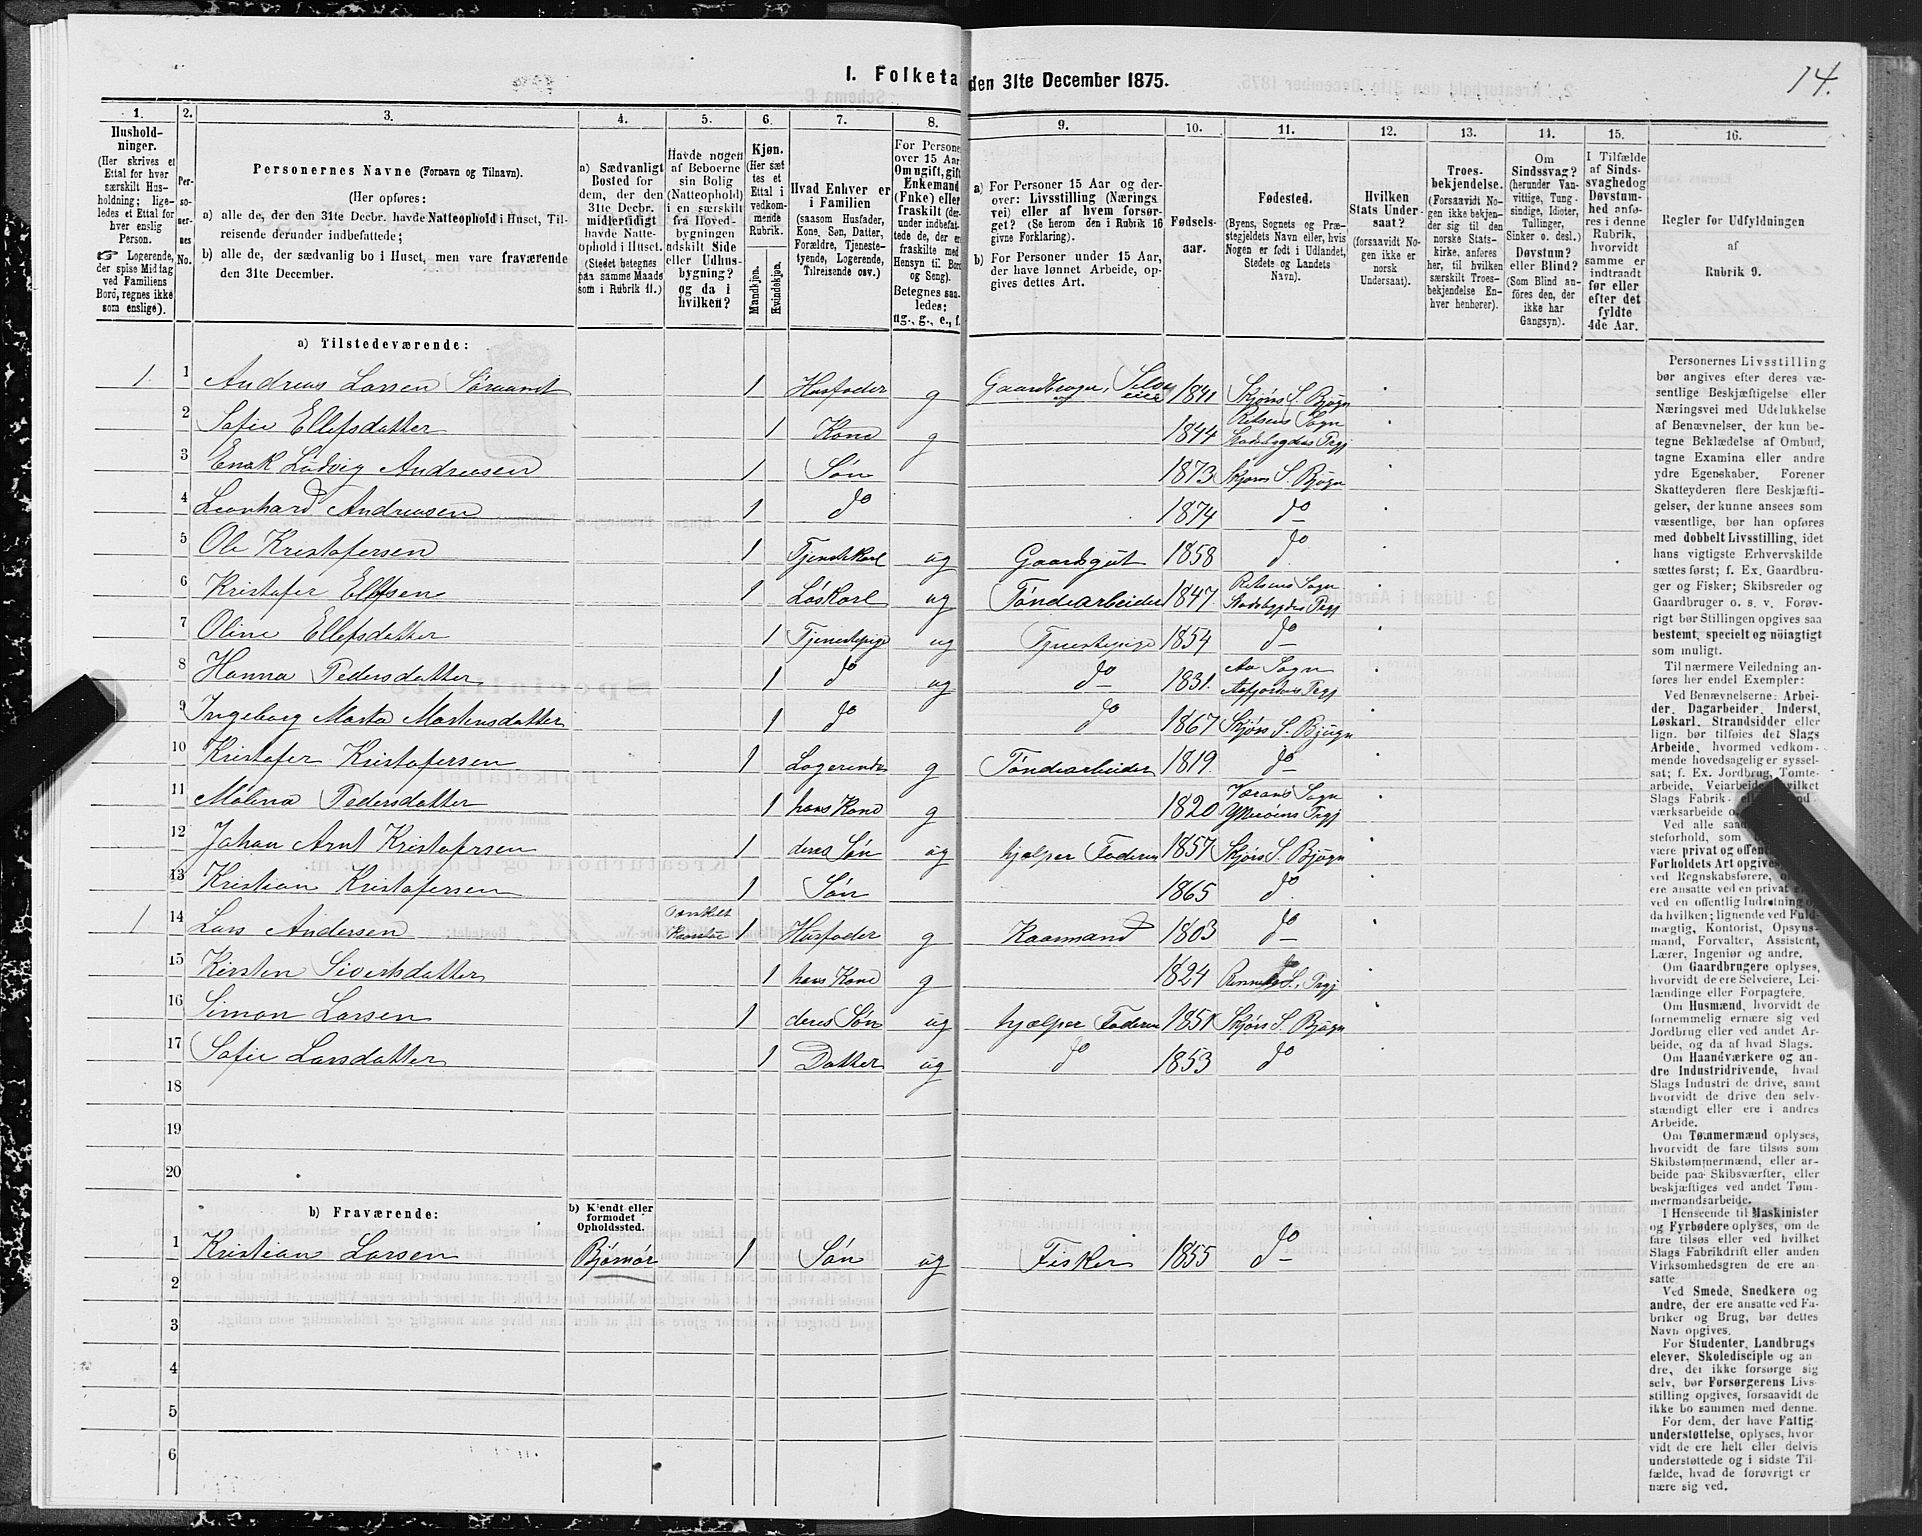 14.
I. Folketa den 31te December 1875.
1. 2. 3. 4. 5. 6. 7. 8. 9. 10. 11. 12. 13. 14. 15. 16.
Hushold-
ninger.
(Her skrives et
Ettal for hver
særskilt Hus-
holdning; lige-
ledes et Ettal for
hver enslig
Person.
☞ Logerende,
der spise Middag
ved Familiens
Bord, regnes ikke
som enslige).
Per-
so-
ner-
nes
No.
Personernes Navne (Fornavn og Tilnavn).
(Her opføres:
a) alle de, der den 31te Decbr. havde Natteophold i Huset, Til-
reisende derunder indbefattede;
b) alle de, der sædvanlig bo i Huset, men vare fraværende
den 31te December.
a) Sædvanligt
Bosted for
dem, der den
31te Decbr.
midlertidigt
havde Natte-
ophold i Huset.
(Stedet betegnes
paa samme Maade
som i Rubrik 11.)
Havde nogen
af Beboerne
sin Bolig
(Natteophold)
i en særskilt
fra Hoved-
bygningen
adskilt Side
eller Udhus-
bygning?
og da i
hvilken?
Kjøn.
(Her sæt
tes et
Ettal i
vedkom-
mende
Rubrik.
Mandkjøn.
Kvindekjøn.
Hvad Enhver er
i Familien
(saasom Husfader,
Kone, Søn, Datter,
Forældre, Tjeneste-
tyende, Logerende,
Tilreisende osv.)
For Persone
over 15 Aar
Om ugift, gift
Enkemand
(Enke) eller
fraskilt (der-
under indbefat-
tede de, der e
fraskilte med
Hensyn til Bord
og Seng).
Betegnes saa-
ledes:
ug., g., e., f.
a) For Personer 15 Aar og der-
over: Livsstilling (Nærings
vei) eller af hvem forsør-
get? (Se herom den i Rubrik 16
givne Forklaring).
b) For Personer under 15 Aar,
der have lønnet Arbeide, op-
gives dettes Art.
Fødsels-
aar.
Fødested.
(Byens, Sognets og Præ-
stegjeldets Navn eller, hvis
Nogen er født i Udlandet,
Stedets og Landets
Navn).
Hvilken
Stats Under-
saat?
(forsaavidt No-
gen ikke er
norsk
Undersaat).
Troes-
bekjendelse.
(Forsaavidt No-
gen ikke bekjen-
der sig til den
norske Stats-
kirke, anføres
her, til hvilken
særskilt Troes-
bekjendelse En-
hver henhører).
Om
Sindssvag?
(herunder Van-
vittige, Tung-
sindige, Idioter,
Sinker o. desl.)
Døvstum?
eller Blind?
(Som Blind an-
føres den, der
ikke har
Gangsyn).
I Tilfælde
af Sinds-
svaghed og
Døvstum-
hed anfø-
res i denne
Rubrik,
hvorvidt
samme er
indtraadt
før eller
efter det
fyldte
4de Aar.
Regler for Udfyldningen
af
Rubrik 9.
a) Tilstedeværende:
1 1 Andreas Larsen 1 Husfader g Gaardbruger, 1841 Skjørs S. Bjugn
2 Sofie Ellefsdatter 1 Kone g 1844 Retsens Sogn Stadsbygdens Prgj
3 Enok Ludvig Andreasen 1 Søn 1873 Skjørs S. Bjugn
4 Leonhard Andreasen 1 do 1874 do
5 Ole Kristofersen 1 Tjenstkarl ug Gaardsgut 1858 do
6 Kristofer Ellefsen 1 Løskarl ug Tøndearbeider 1847 Retsens Sogn Stadsbygdens Prgj
7 Oline Ellefsdatter 1 Tjenestepige ug Tjenestepige 1854 do
8 Hanna Pedersdatter 1 do ug do 1831. Aa Sogn Aafjordens Prgj
9 Ingeborg Marta Martensdatter 1 do do 1867 Skjørs S. Bjugn
10 Kristofer Kristofersen 1 Logerende g Tøndearbeider 1819. do
11 Malena Pedersdatter 1 hans Kone g 1820 Sogn Prgj
12 Johan Arnt Kristofersen 1 deres Søn ug hjælper Faderen 1857 Skjørs S. Bjugn
13 Kristian Kristofersen 1 Søn 1865 do
1 14 Lars Andersen 1 Husfader g Kaarmand 1803 do
15 Kirsten Sivertsdatter 1 hans Kone g 1824 S. Prgj
16 Simon Larsen 1 deres Søn ug hjælper Faderen 1851 Skjørs S. Bjugn
17 Sofie Larsdatter 1 Datter ug do 1853 do
18
19
20
b) Fraværende:
b) Kjendt eller
formodet
Opholdssted.
1 Kristian Larsen Bjørnør 1 Søn ug Fisker 1855 do
2
3
4
5
6
Personernes Livsstilling
bør angives efter deres væ-
sentlige Beskjæftigelse eller
Næringsvei med Udelukkelse
af Benævnelser, der kun be-
tegne Beklædelse af Ombud,
tagne Examina eller andre
ydre Egenskaber. Forener
Skatteyderen flere Beskjæfti-
gelser, der kunne ansees som
væsentlige, bør han opføres
med dobbelt Livsstilling, idet
hans vigtigste Erhvervskilde
sættes først; f. Ex. Gaardbru-
ger og Fisker; Skibsreder og
Gaardbruger o. s. v. Forøv-
rigt bør Stillingen opgives saa
bestemt, specielt og nöiagtigt
som muligt.
Til nærmere Veiledning an-
føres her endel Exempler:
Ved Benævnelserne: Arbei-
der, Dagarbeider, Inderst,
Løskarl, Strandsidder eller
lign. bør tilføies det Slags
Arbeide, hvormed vedkom-
mende hovedsagelig er syssel-
sat; f. Ex. Jordbrug, Tomte-
arbeide, Veiarbeide, hvilket
Slags Fabrik-
værksarbeide
Ved alle
steforhold, som
være privat og offent
Forholdets Art opgives,
ved Regnskabsførere,
ere ansatte ved en privat
ved en offentlig Indretning
da hvilken; lignende ved Fuld-
mægtig, Kontorist, Opsyns-
mand, Forvalter, Assistent,
Lærer, Ingeniør og andre.
Om Gaardbrugere oplyses,
hvorvidt de ere Selveiere, Lei-
lændinge eller Forpagtere.
Om Husmænd, hvorvidt de
fornemmelig ernære sig ved
Jordbrug eller ved andet Ar-
beide, og da af hvad Slags.
Om Haandværkere og an-
dre Industridrivende, hvad
Slags Industri de drive, samt
hvorvidt de drive den selv-
stændigt eller ere i andres
Arbeide.
Om Tømmermænd oplyses,
hvorvidt de fare tilsøs som
Skibstømmermænd, eller ar-
beide paa Skibsværfter, eller
beskjæftiges ved andet Tøm-
mermandsarbeide.
I Henseende til Maskinister
og Fyrbødere oplyses, om de
fare tilsøs eller ved hvilket
Slags Fabrikdrift eller anden
Virksomhedsgren de ere an-
satte.
Ved Smede, Snedkere og
andre, der ere ansatte ved Fa-
briker og Brug, bør dettes
Navn opgives.
For Studenter, Landbrugs
elever, Skoledisciple og an
dre, der ikke forsørge sig
selv, bør Forsørgerens Livs-
stilling opgives, forsaavidt de
ikke bo sammen med denne.
For dem, der have Fattig-
understøttelse, oplyses, hvor
vidt de ere helt eller delvis
understøttede og i sidste Til-
fælde, hvad de forøvrigt er
nære sig ved.